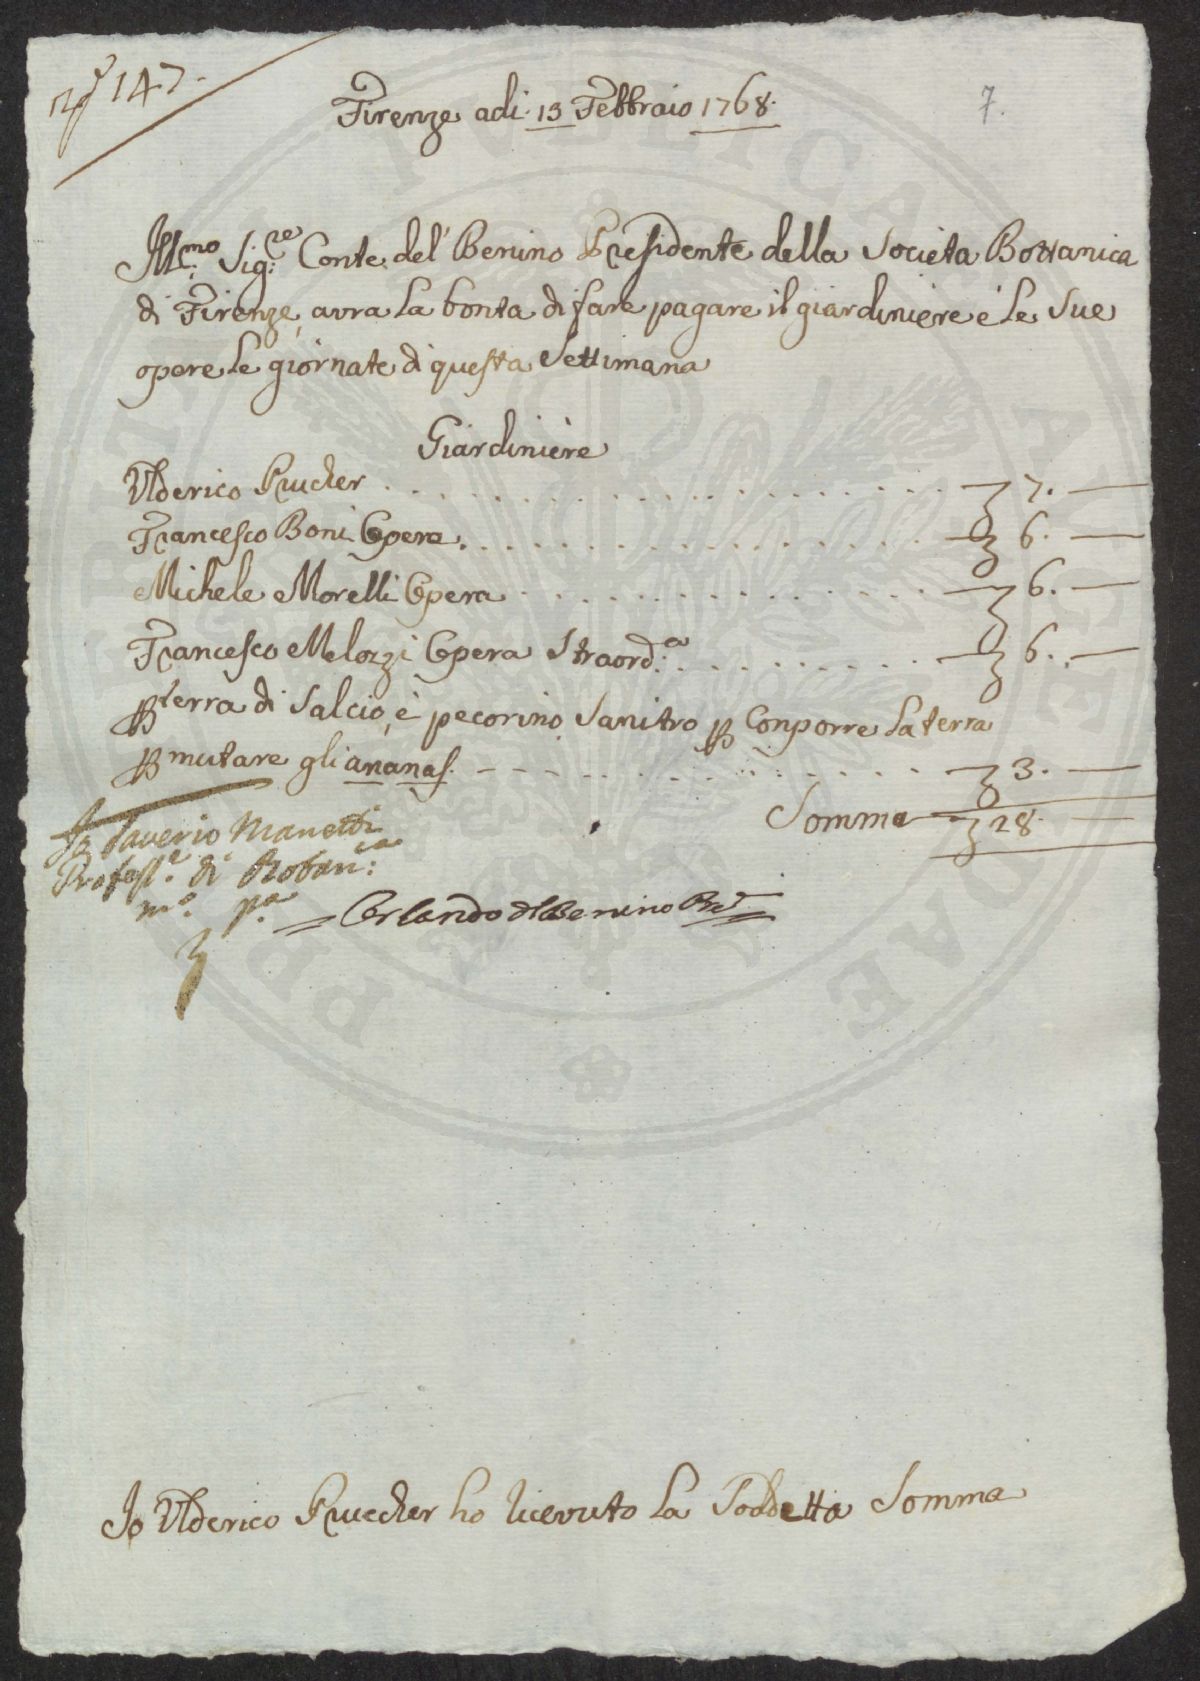 147.
Firenze adi 13 Febbraio 1768.
7.
Ill:mo Sig:re Conte del' Benino Presidente della Societa Bottanica
di Firenze, avra la bonta di fare pagare il giardiniere é le Sue
opere le giornate di questa Settimana
Giardiniere
Ulderico Pruckner 7. —
Francesco Boni Opera 6. —
Michele Morelli Opera 6. —
Francesco Melozzi Opera Straord:a 6. —
p terra di Salcio, è pecorino, Sanitro p Conporre la terra
p mutare gli ananas. 3. —
Somma 28. —
Saverio Manetti
Profess:e di Botan:ca
m:o p:a
Orlando del Benino
Io Ulderico ho licevuto la Soddetta Somma